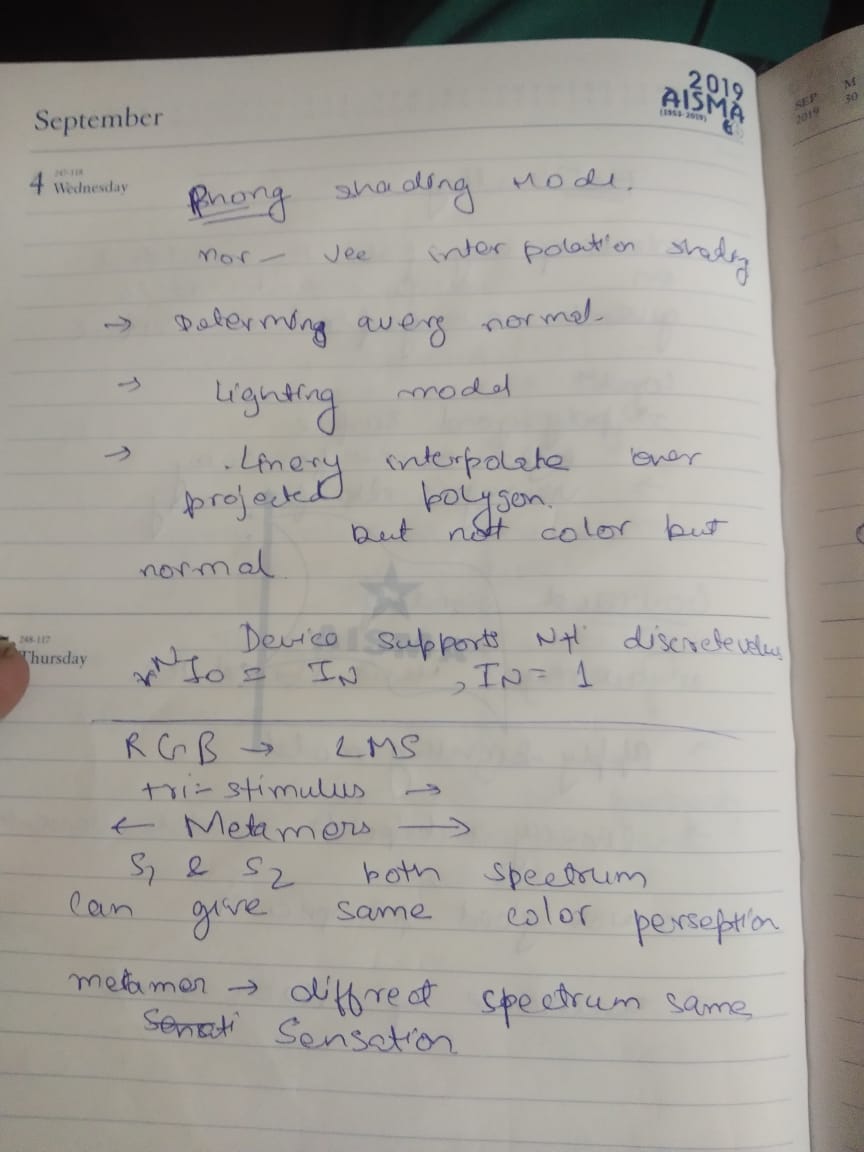 2019
AISMA
(1953-2019)
September
SEP M
2019 30
4 247-118
Wednesday
Phong shading Mode.
nor - vee interpolation shading
→ Determing averg normal.
→ Lighting model
→ .Linery interpolate over
projected polygon.
but not color but
normal.
248-117
Thursday
Device supports N+1 discrete values
r^N I0 = IN , IN = 1
RGB → LMS
tri-stimulus →
← Metamers →
S1 & S2 both spectrum
can give same color perseption
metamer → diffrect spectrum same
Sensati Sensation
AISMA